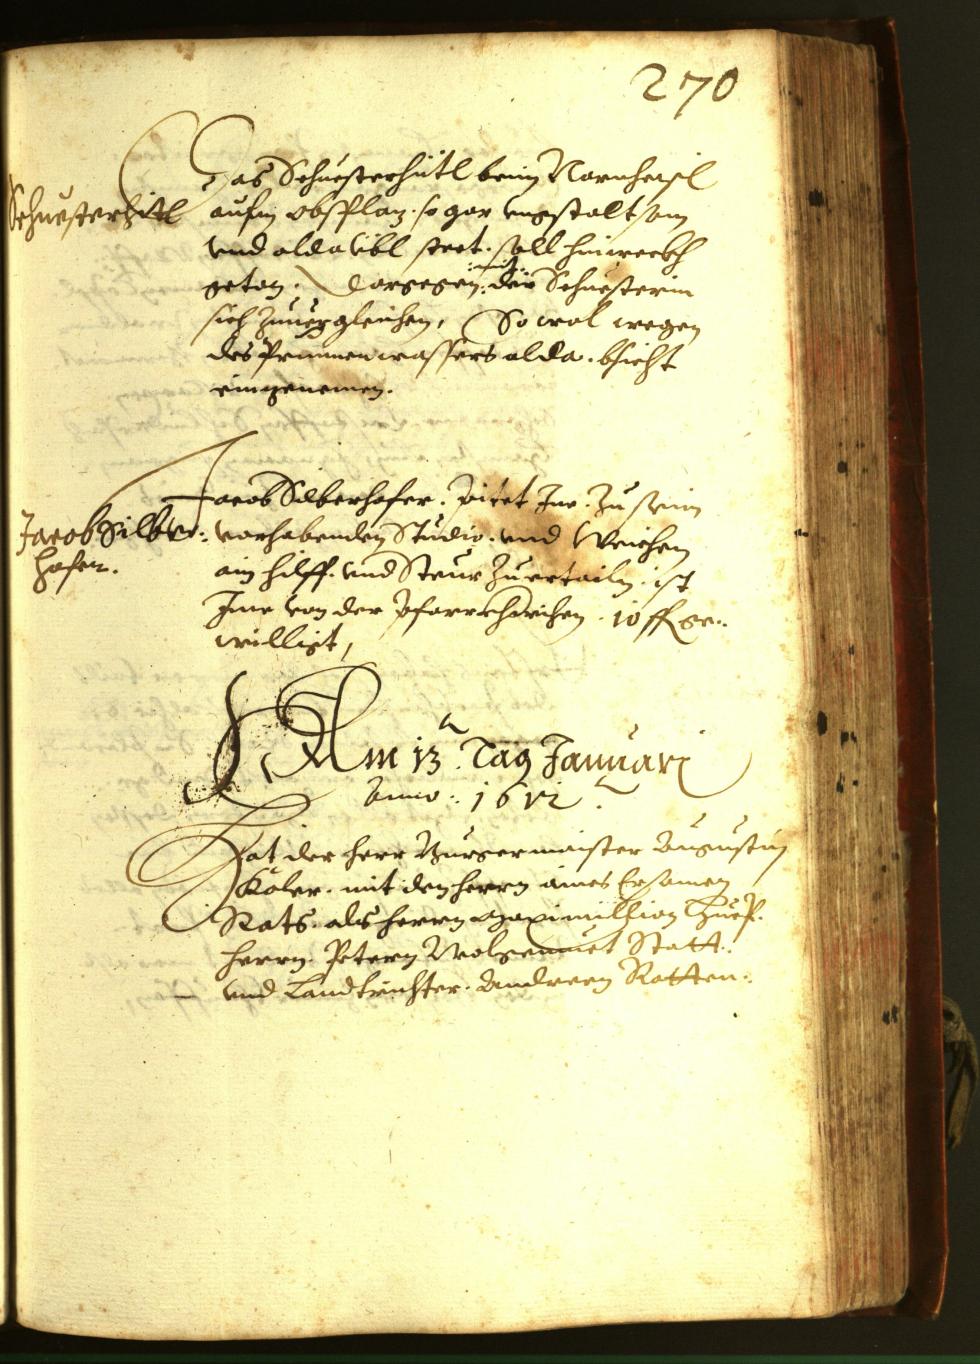 270
Schuesterhitl
Das Schuesterhütl beim Narrnheisl
aufm obsplaz. so gar ungestaltsam
und alda übl steet. soll hinweckh
getan. Dargegen: mit: der Schuesterin
sich zuuergleichen, So wol wegen
des Prunnenwassers alda. bsicht
eingenomen.
Jacob Silber:
hofer.
Jacob Silberhofer. pitet Ime. zu seim
vorhabenden Studio. und Weichen
ain hilff. und Steur zuertailn. ist
Ime von der Pfarrkhirchen. 10 ge:
willigt,
Am 13. Tag Januari
Anno: 1612
Hat der herr Burgermaister Augustin
Köler. mit den herrn aines Ersamen
Rats. als herrn Maximillion
herrn. Petern Statt:
und Landtrichter. Andreen Rotten: